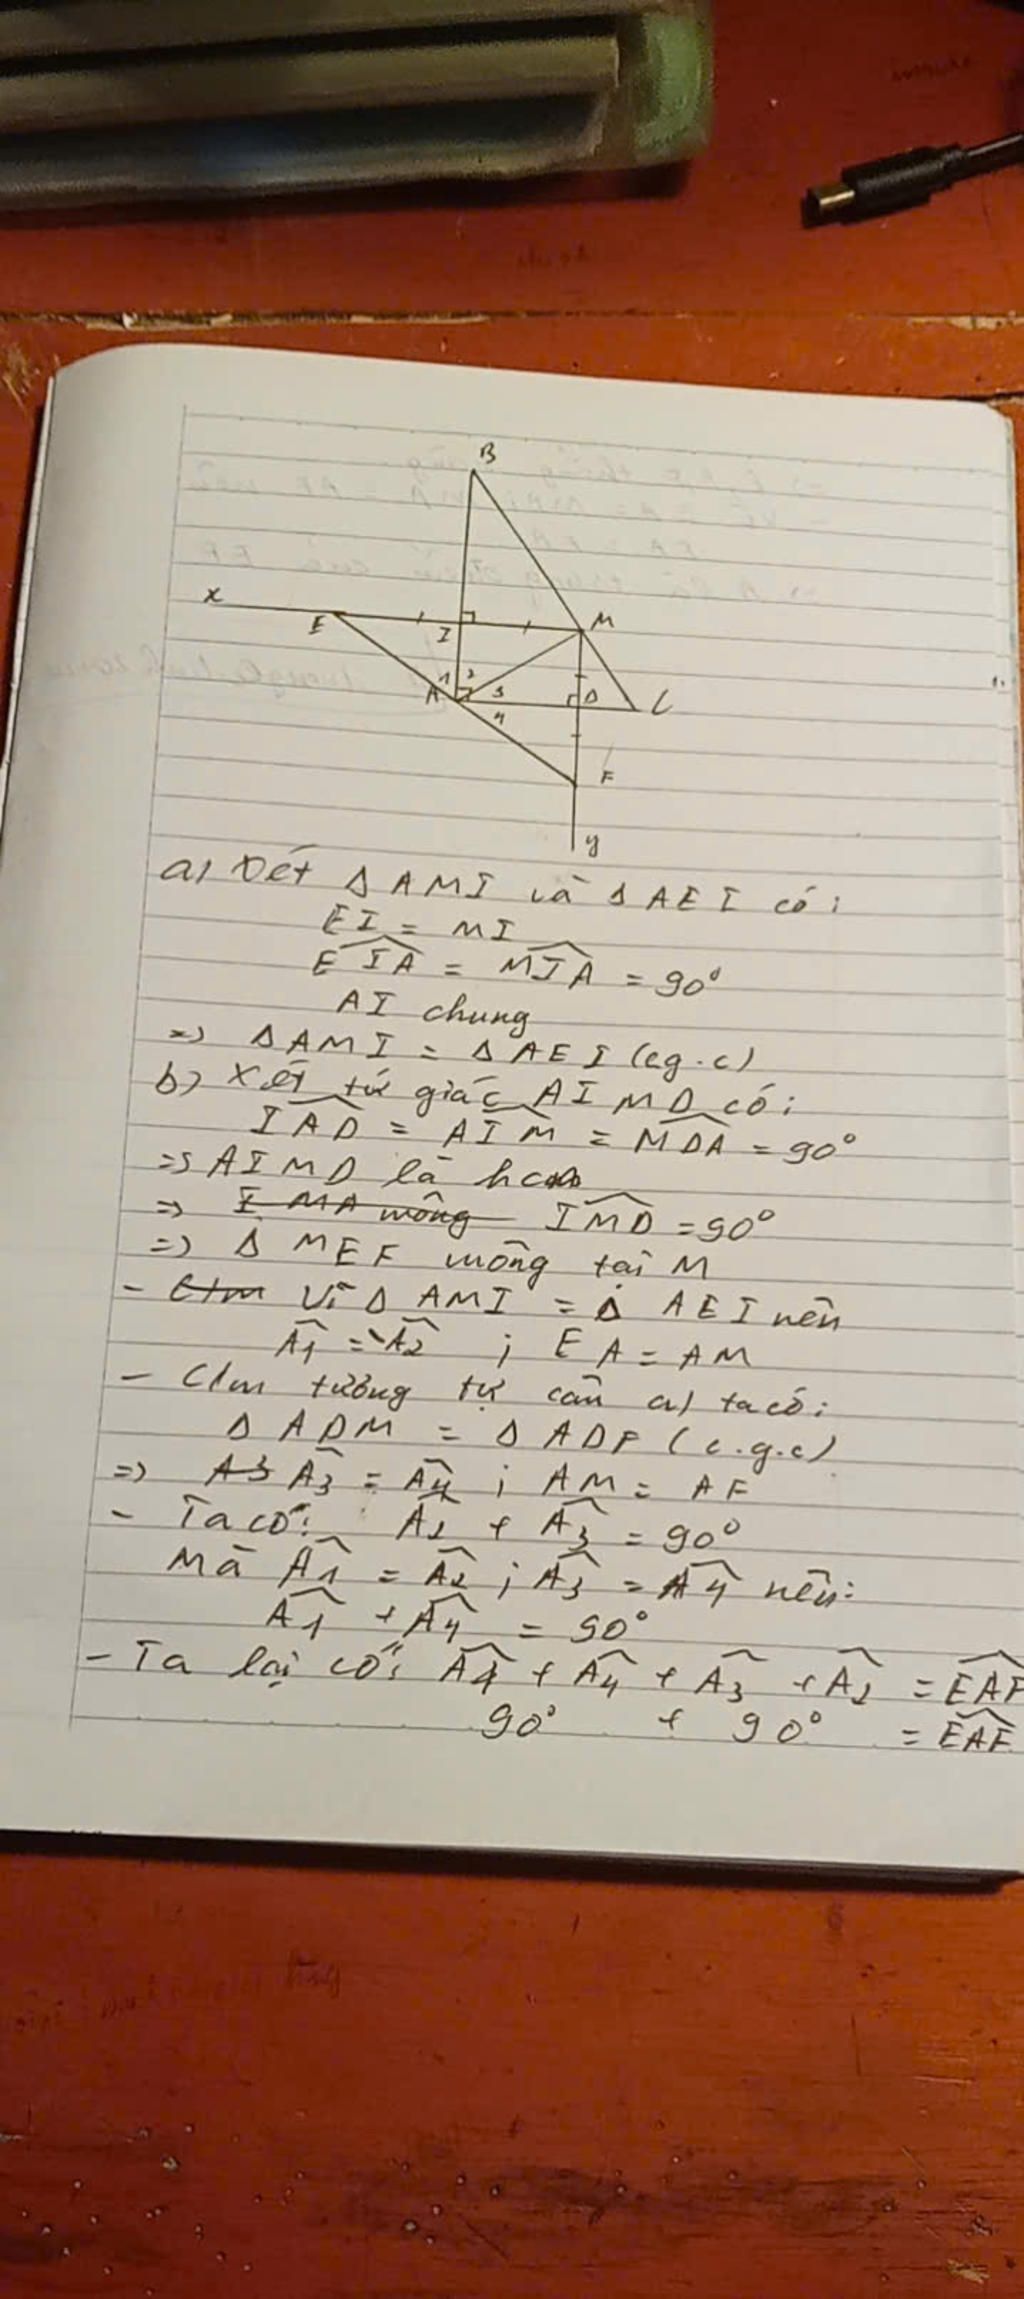 B
x
E
I
M
1
2
A
3
D
C
4
F
y
a) Xét Δ AMI và Δ AEI có:
EI = MI
EIA = MIA = 90°
AI chung
=> Δ AMI = Δ AEI (cg.c)
b) Xét tứ giác AIMD có:
IAD = AIM = MDA = 90°
=> AIMD là hcn
=> IMA vuông IMD = 90°
=> Δ MEF vuông tại M
- Ctm Vì Δ AMI = Δ AEI nên
A1 = A2 ; EA = AM
- C/m tương tự câu a) ta có:
Δ ADM = Δ ADF (c.g.c)
=> A3 A3 = A4 ; AM = AF
- Ta có: A2 + A3 = 90°
Mà A1 = A2 ; A3 = A4 nên:
A1 + A4 = 90°
- Ta lại có: A1 + A4 + A3 + A2 = EAF
90° + 90° = EAF